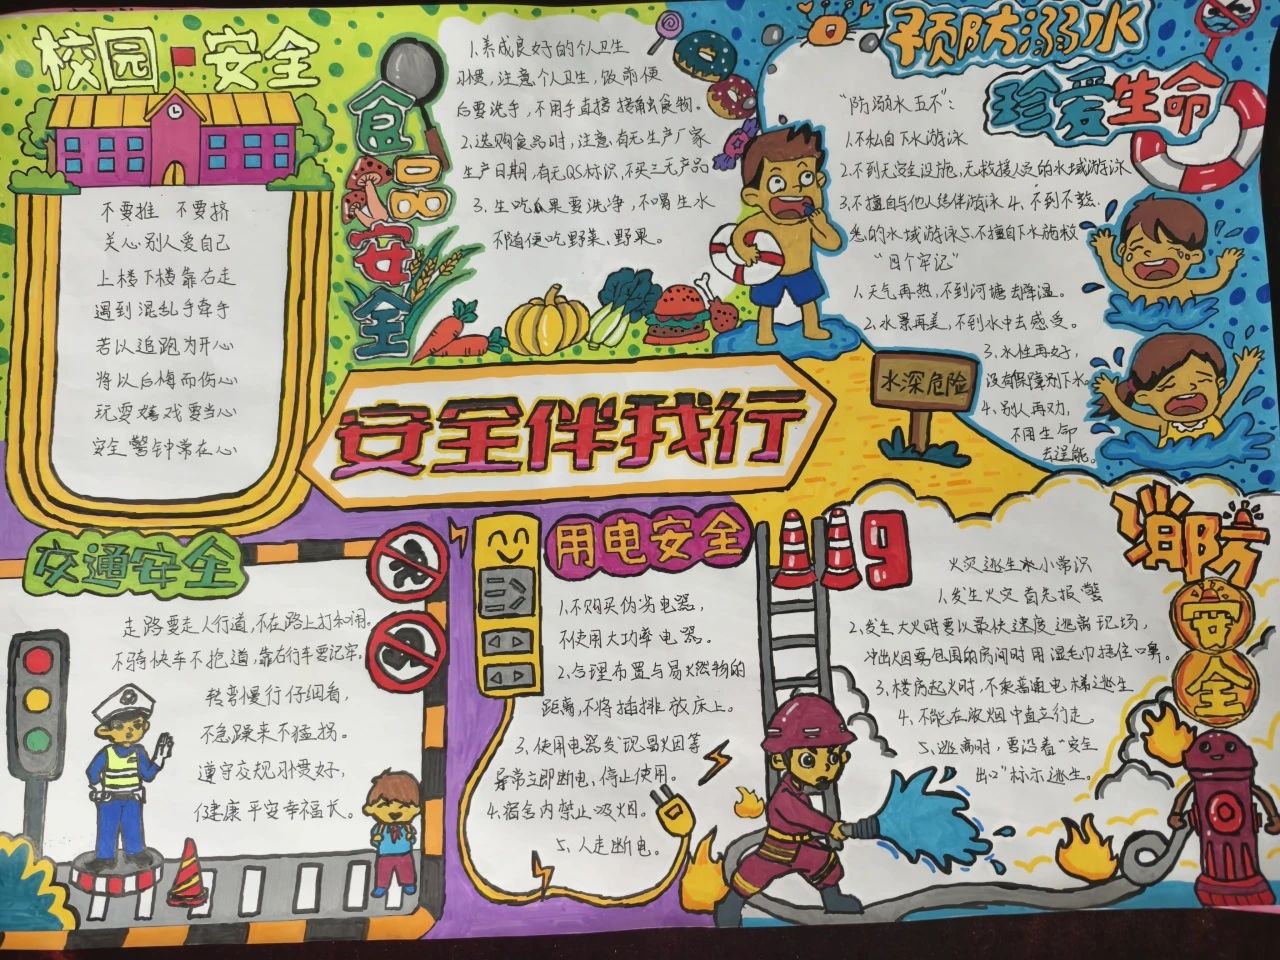 校园安全
不要推 不要挤
关心别人爱自己
上楼下楼靠右走
遇到混乱手牵手
若以追跑为开心
将以后悔而伤心
玩耍嬉戏要当心
安全警钟常在心
食品安全
1.养成良好的个人卫生
习惯,注意个人卫生,饭前便
后要洗手,不用手直接接触食物。
2.选购食品时,注意有无生产厂家
生产日期,有无QS标识,不买三无产品
3.生吃瓜果要洗净,不喝生水
不随便吃野菜、野果。
预防溺水
珍爱生命
“防溺水五不”:
1.不私自下水游泳
2.不到无安全设施,无救援人员的水域游泳
3.不擅自与他人结伴游泳 4.不到不熟
悉的水域游泳5.不擅自下水施救
“四个牢记”
1.天气再热,不到河塘去降温。
2.水景再美,不到水中去感受。
3.水性再好,
没有保障别下水。
4.别人再劝,
不用生命
去逞能。
水深危险
安全伴我行
交通安全
走路要走人行道,不在路上打和闹。
不骑快车不抢道,靠右行车要记牢。
转弯慢行仔细看,
不急躁来不猛拐。
遵守交规习惯好,
健康平安幸福长。
用电安全
1.不购买伪劣电器,
不使用大功率电器。
2.合理布置与易燃物的
距离,不将插排放床上。
3.使用电器发现冒火因等
异常立即断电,停止使用。
4.宿舍内禁止吸烟。
5.人走断电。
119
消防安全
火灾逃生小常识
1.发生火灾首先报警
2.发生大火时要以最快速度逃离现场,
冲出烟雾包围的房间时用湿毛巾捂住口鼻。
3.楼房起火时,不乘普通电梯逃生
4.不能在浓烟中直立行走。
5.逃离时,要沿着“安全
出口”标示逃生。